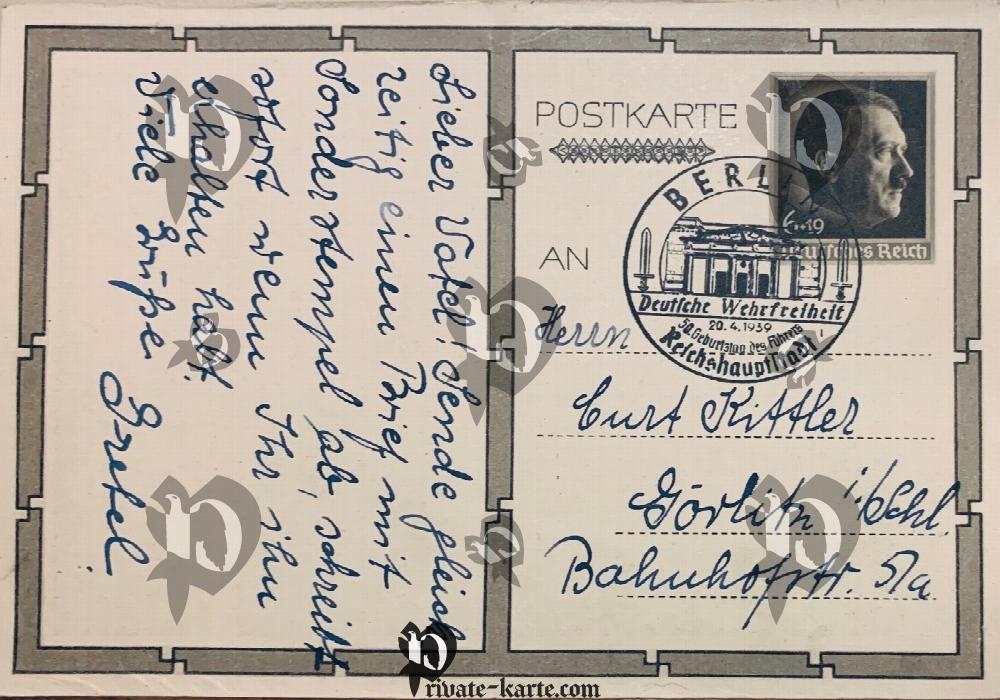 Lieber Vater! Sende gleich
zeitig einen Brief mit
Sonderstempel ab, schreibt
sofort wenn Ihr ihn
erhalten habt.
Viele Grüße
Gretel
POSTKARTE
6+19
Deutsches Reich
BERLIN
Deutsche Wehrfreiheit
20.4.1939
50. Geburtstag des Führers
Reichshauptstadt
AN
Herrn
Curt Kittler
Görlitz i/Schl
Bahnhofstr. 57a
Private-karte.com